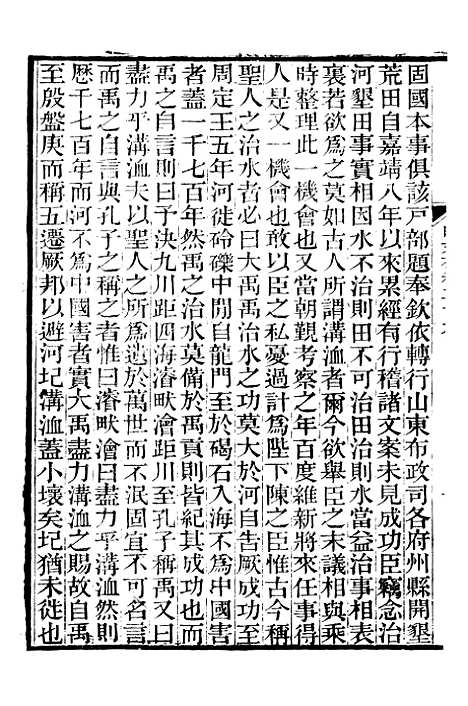 固國本事俱該戸部題奉欽依轉行山東布政司各府州縣開墾
荒田自嘉靖八年以來累經有行稽諸文案未見成功臣竊念治
河墾田事實相因水不治則田不可治田治則水當益治事相表
裏若欲爲之莫如古人所謂溝洫者爾今欲舉臣之末議相與乘
時整理此一機會也又當朝覲考察之年百度維新將來任事得
人是又一機會也敢以臣之私憂過計爲陛下陳之臣惟古今稱
聖人之治水者必曰大禹禹治水之功莫大於河自告厥成功至
周定王五年河徙砱礫中閒自龍門至於碣石入海不爲中國害
者蓋一千七百年然禹之治水莫備於禹貢則皆紀其成功也而
禹之自言則曰予決九川距四海濬畎澮距川至孔子稱禹則曰
盡力乎溝洫夫以聖人之所爲遺於萬世而不泯固宜不可名言
而禹之自言與孔子之稱之者惟曰濬畎澮曰盡力乎溝洫然則
歷千七百年而河不爲中國害者實大禹盡力溝洫之賜故自禹
至殷盤庚而稱五遷厥邦以避河圮溝洫蓋小壞矣圮猶未徙也